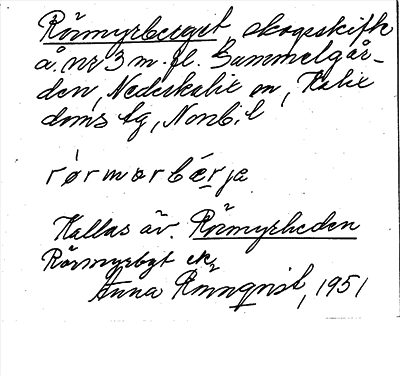 Rörmyrberget, skogsskifte
å nr 3 m. fl. Gammelgår-
den, Nederkalix sn, Kalix
doms tg, Nonb. l
rørmorbærja
Kallas äv. Rörmyrheden
Rörmyrbgt ek
Anna Rönnqvist, 1951